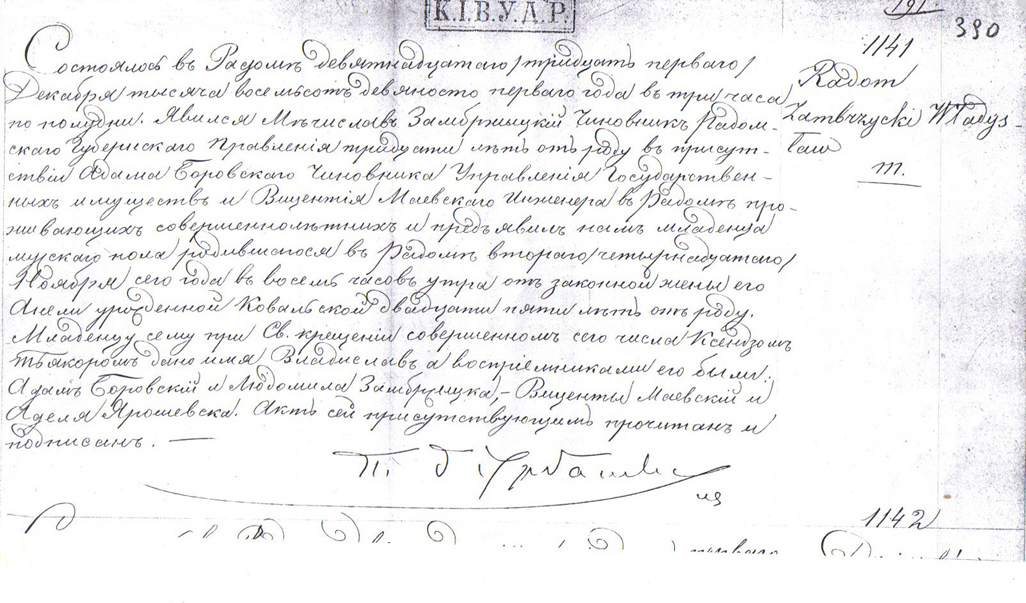 К.І.В.У.Д.Р.
191
390
1141
Radom
Zambrzycki Władys-
ław
m.
Состоялось въ Радомѣ девятнадцатаго/тридцать перваго/
Декабря тысяча восемьсотъ девяносто перваго года въ три часа
по полудни. Явился Мѣчиславъ Замбржицкій Чиновникъ Радом-
скаго Губернскаго Правленія тридцати лѣтъ отъ роду въ присут-
ствіи Адама Боровскаго Чиновника Управленія Государствен-
ныхъ имуществъ и Вицентія Маевскаго Инженера въ Радомѣ про-
живающихъ совершеннолѣтнихъ и предъявилъ намъ младенца
мужскаго пола родившагося въ Радомѣ втораго/четырнадцатаго/
Ноября сего года въ восемь часовъ утра отъ законной жены его
Анели урожденной Ковальской двадцати пяти лѣтъ отъ роду.
Младенцу сему при Св. крещеніи совершенномъ сего числа Ксендзомъ
дано имя Владиславъ а воспріемниками его были:
Адамъ Боровскій и Людомила Замбржицка, - Виценты Маевскій и
Аделя Ярошевска. Актъ сей присутствующимъ прочитанъ и
подписанъ. —
1142